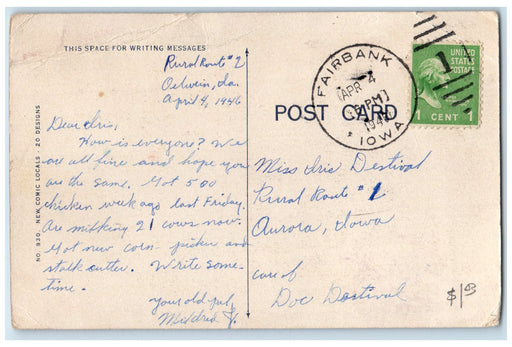 THIS SPACE FOR WRITING MESSAGES
Rural Route #2
Oelwein, Ia.
April 4, 1946
Dear Iris,
How is everyone? We
are all fine and hope you
are the same. Got 500
chicken week ago last Friday.
Are milking 21 cows now.
Got new corn picker and
stalk cutter. Write some-
time.
Your old pal,
Mildred Y.
NO. 930. NEW COMIC LOCALS - 20 DESIGNS
POST CARD
FAIRBANK
APR 4
PM
1946
IOWA
UNITED
STATES
POSTAGE
1 CENT 1
Miss Iris Destival
Rural Route #1
Aurora, Iowa
care of
Doc Destival
$1.00